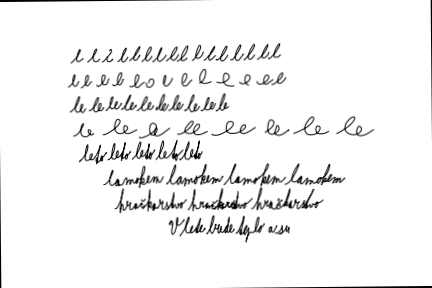 l l l l l l l l l l l l l l l l
l l l l e o v l l e e e e l
le le le le le le le le le le
le le a le le le le le
leto leto leto leto leto
lamokem lamokem lamokem lamokem
hračkarstvo hračkarstvo hračkarstvo
V lete bude teplo a